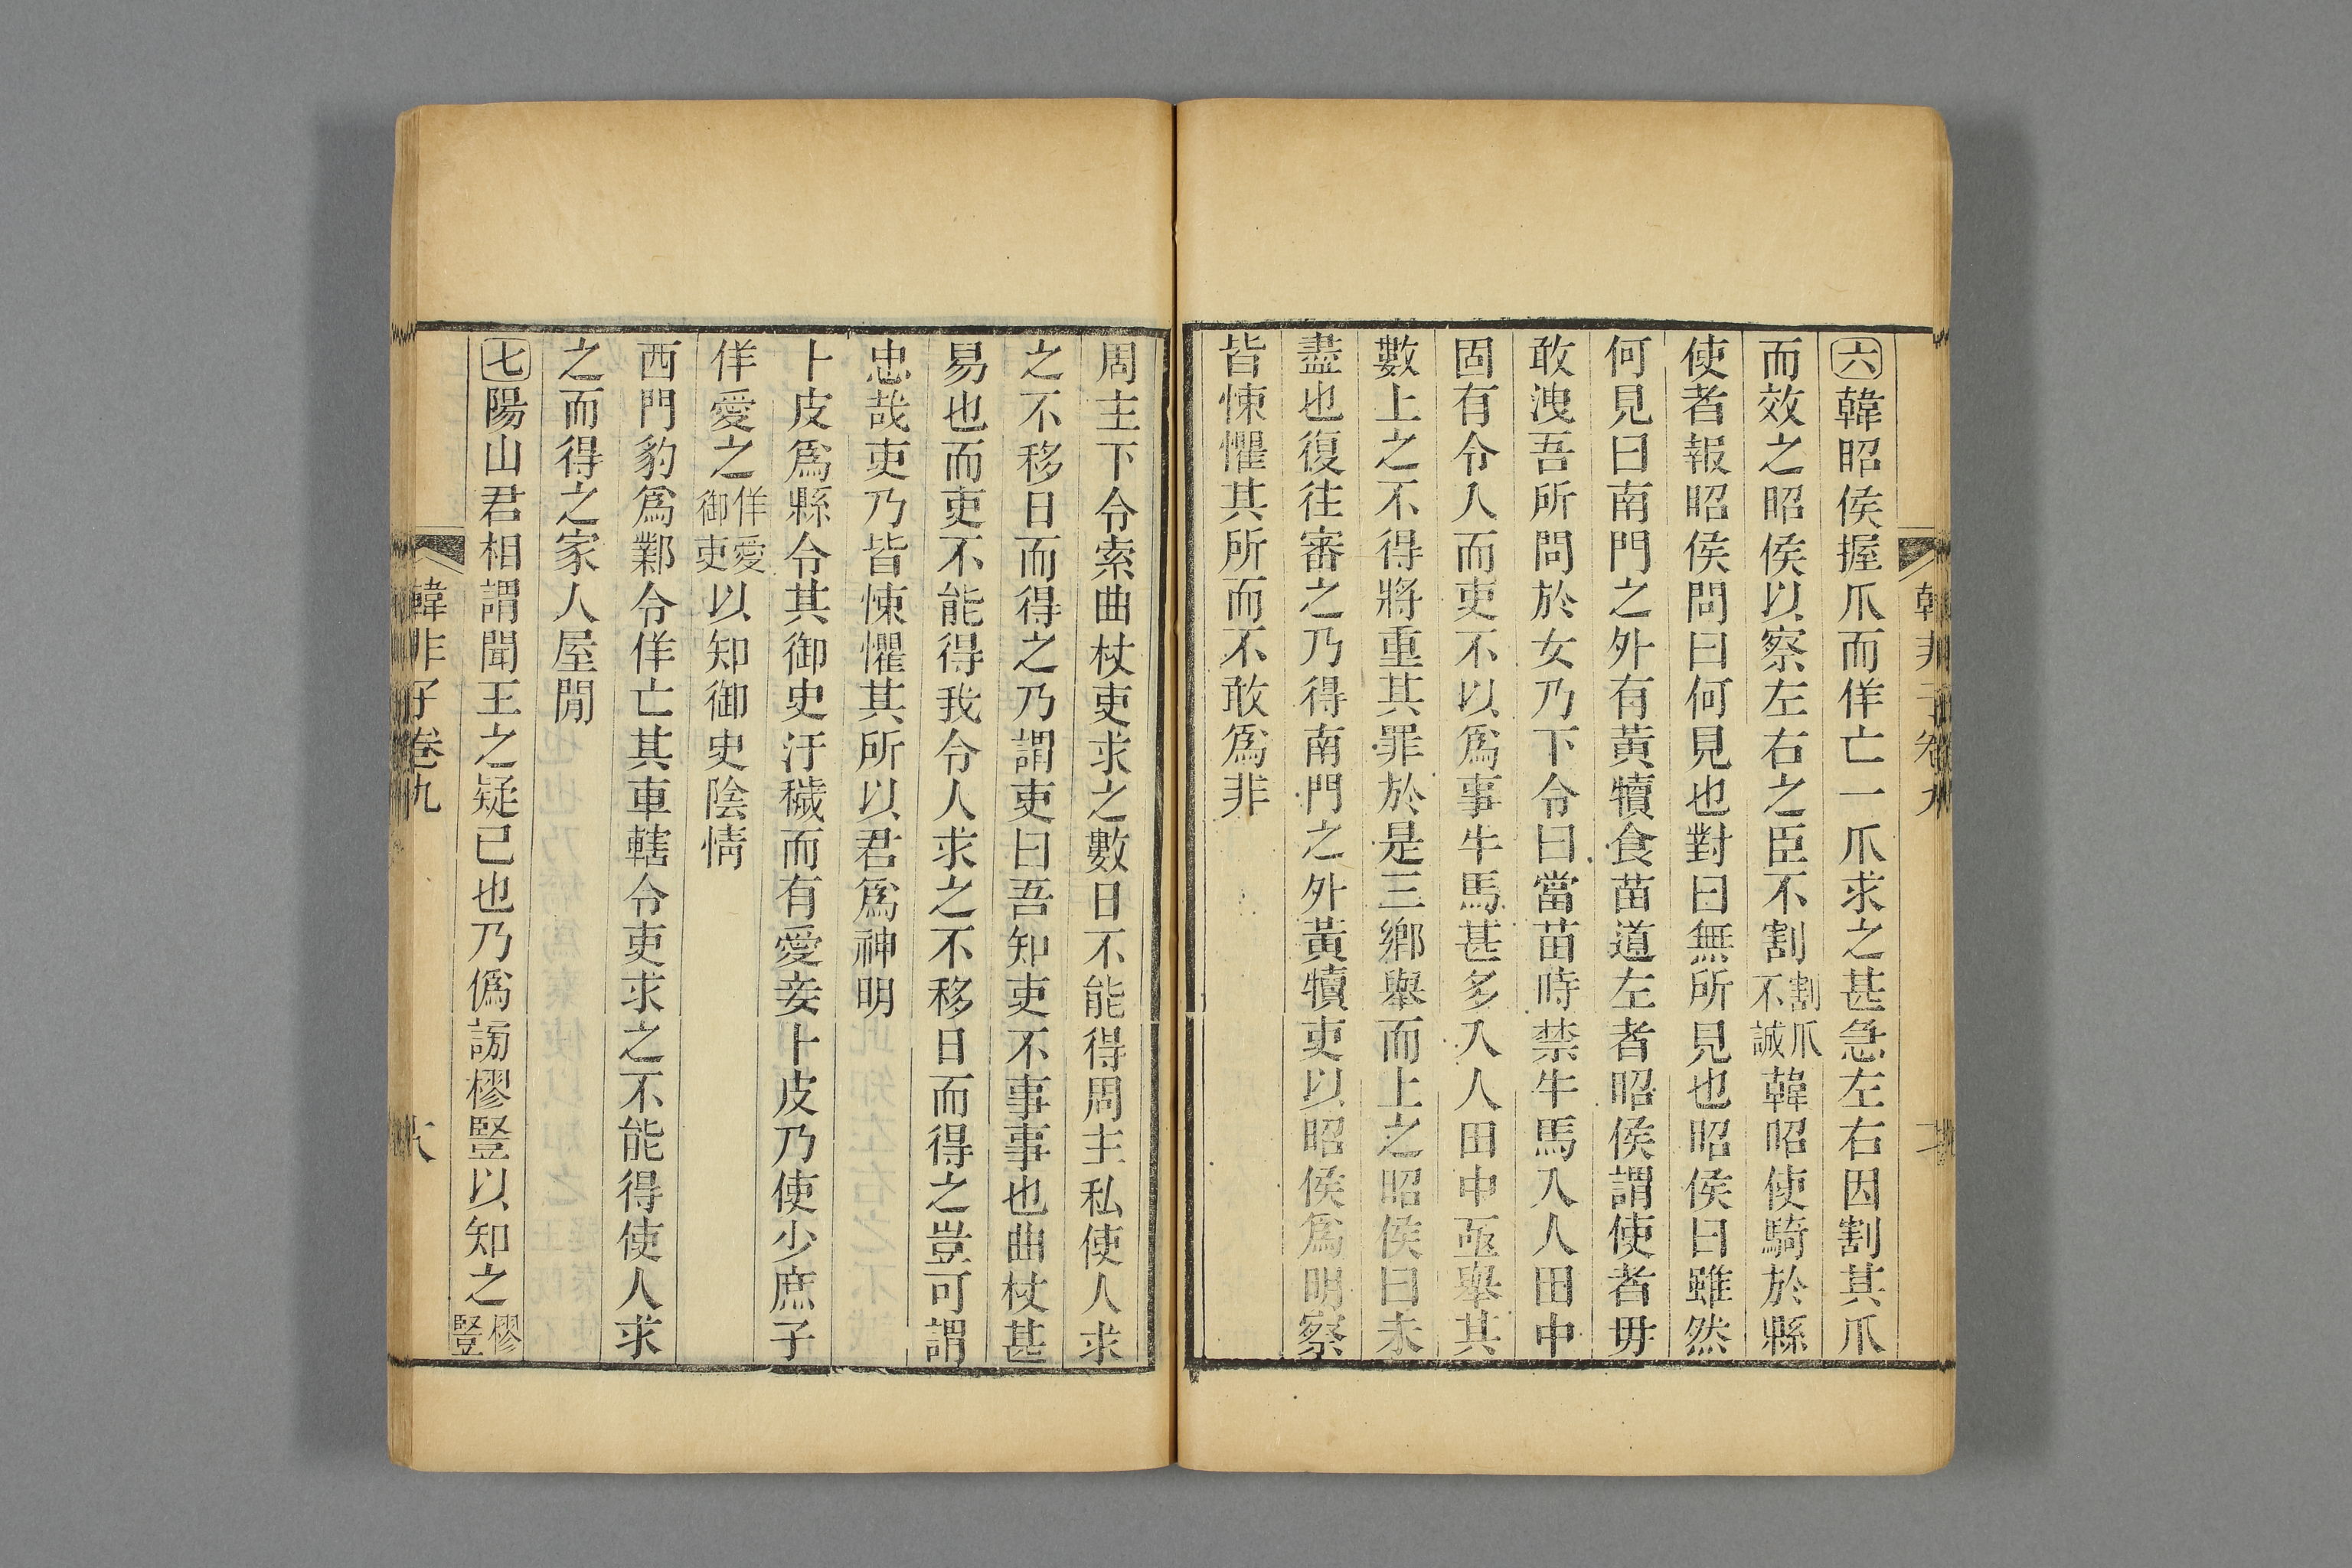 韓非子卷九
六韓昭侯握爪而佯亡一爪求之甚急左右因割其爪
而效之昭侯以察左右之臣不割割爪不誠韓昭使騎於縣
使者報昭侯問曰何見也對曰無所見也昭侯曰雖然
何見曰南門之外有黃犢食苗道左者昭侯謂使者毋
敢洩吾所問於女乃下令曰當苗時禁牛馬入人田中
固有令人而吏不以爲事牛馬甚多入人田中亟舉其
數上之不得將重其罪於是三鄉舉而上之昭侯曰未
盡也復往審之乃得南門之外黃犢吏以昭侯爲明察
皆悚懼其所而不敢爲非
周主下令索曲杖吏求之數日不能得周主私使人求
之不移日而得之乃謂吏曰吾知吏不事事也曲杖甚
易也而吏不能得我令人求之不移日而得之豈可謂
忠哉吏乃皆悚懼其所以君爲神明
卜皮爲縣令其御史汙穢而有愛妾卜皮乃使少庶子
佯愛之佯愛御吏以知御史陰情
西門豹爲鄴令佯亡其車轄令吏求之不能得使人求
之而得之家人屋閒
七陽山君相謂聞王之疑己也乃僞謗樛豎以知之樛豎
韓非子卷九